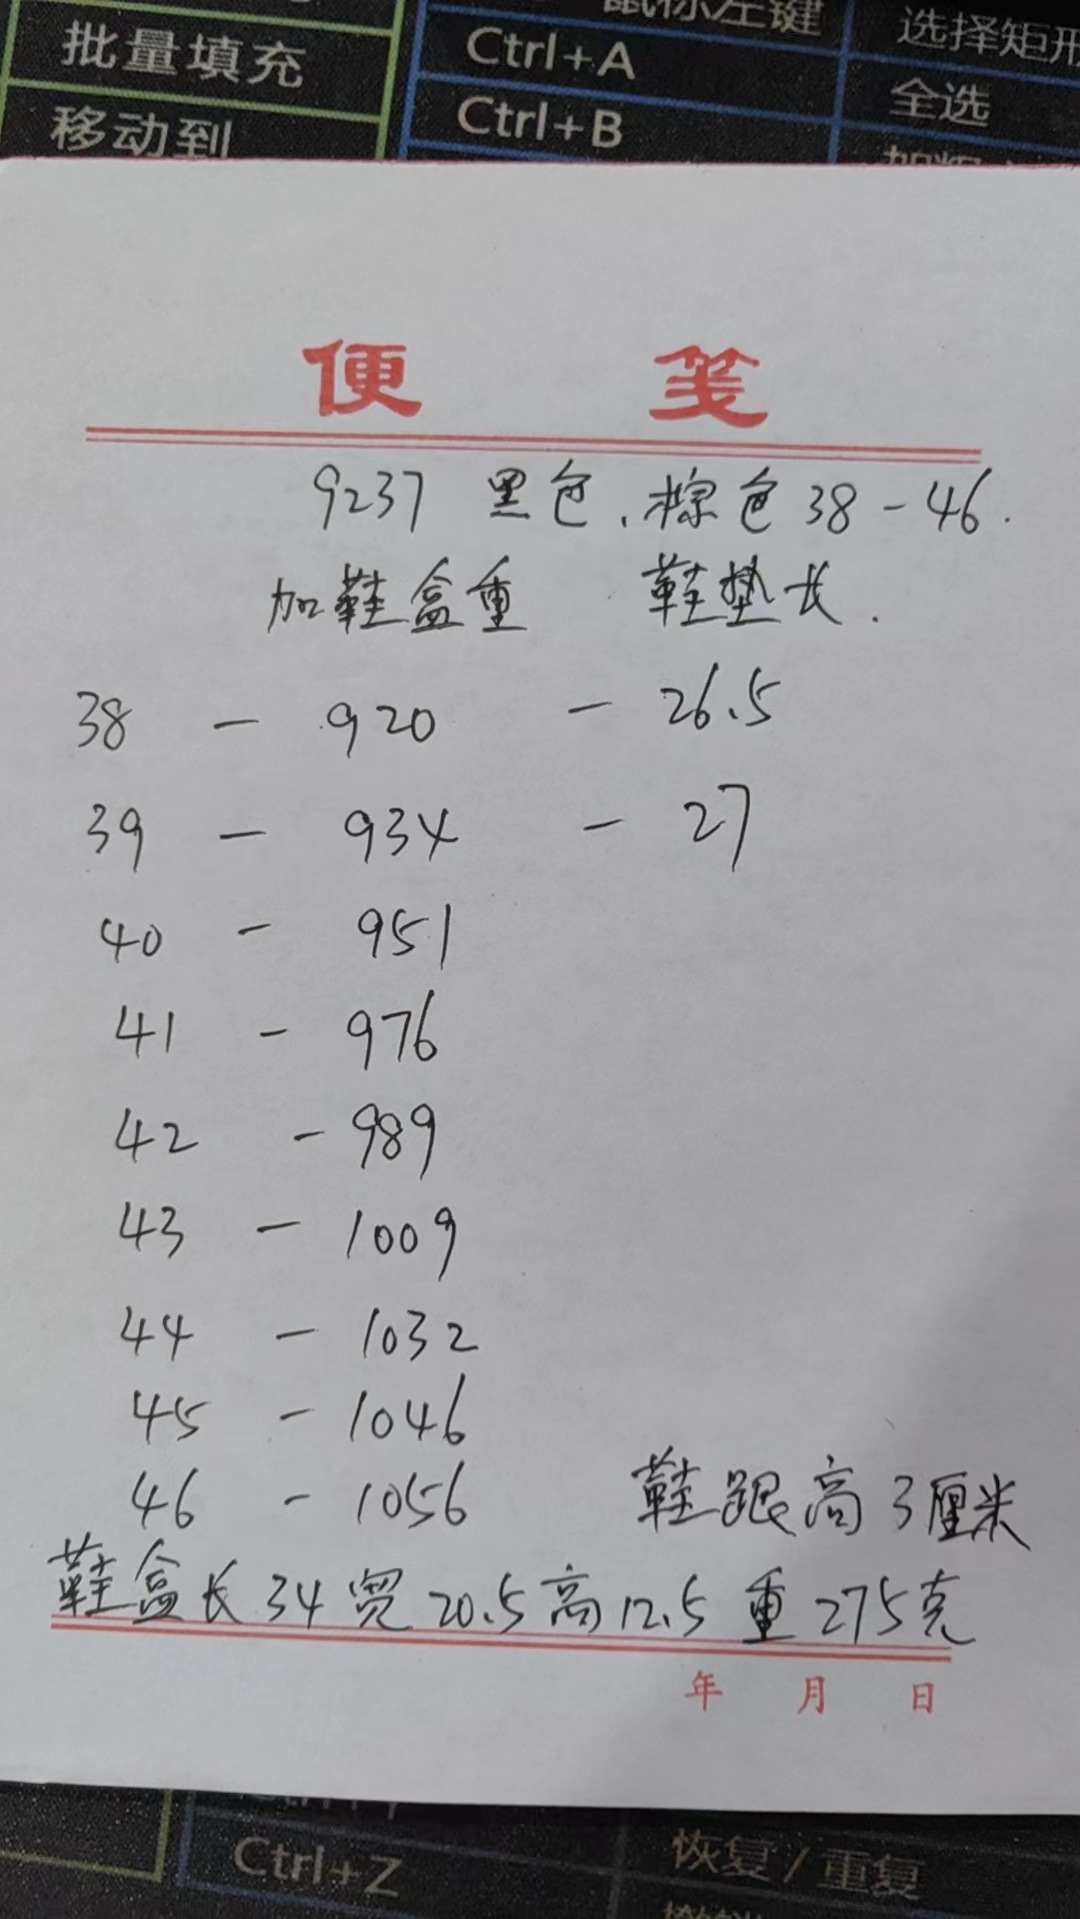 批量填充
移动到
鼠标左键
选择矩形
Ctrl+A
全选
Ctrl+B
便 笺
9237 黑色、棕色 38-46.
加鞋盒重 鞋垫长.
38 - 920 - 26.5
39 - 934 - 27
40 - 951
41 - 976
42 - 989
43 - 1009
44 - 1032
45 - 1046
46 - 1056 鞋跟高3厘米
鞋盒长34宽20.5高12.5重275克
年 月 日
Ctrl+Z
恢复/重复